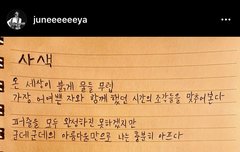 juneeeeeeya
사색
온 세상이 붉게 물들 무렵
가장 어여쁜 자와 함께 했던 시간의 조각들을 맞추어본다
퍼즐을 모두 완성하진 못하겠지만
군데군데의 아름다움만으로 나는 충분히 아프다